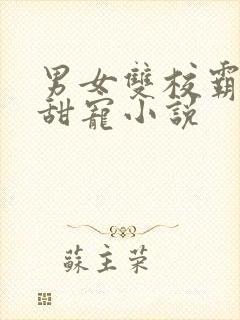 男女雙校霸
甜寵小說
蘇主荣